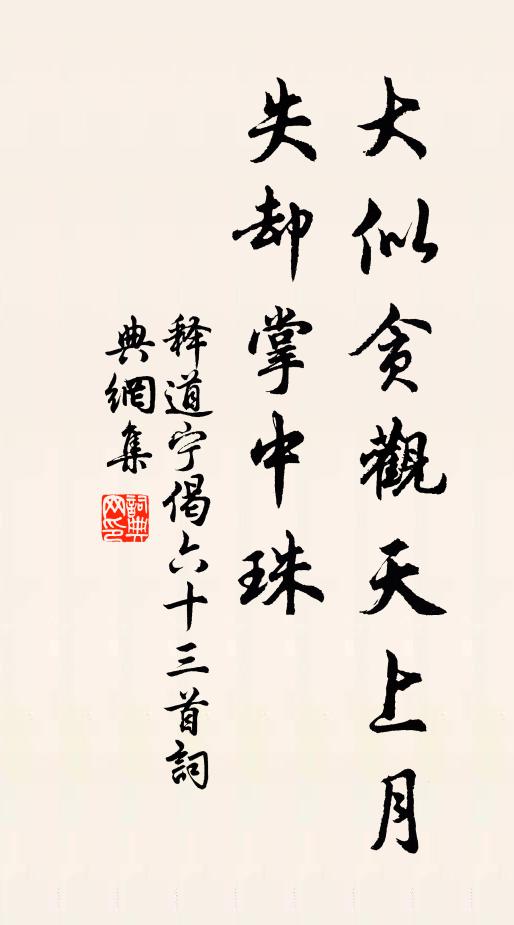 大似贪觀天上月
失却掌中珠
释道宁偈六十三首詞
典網集
詞典网印